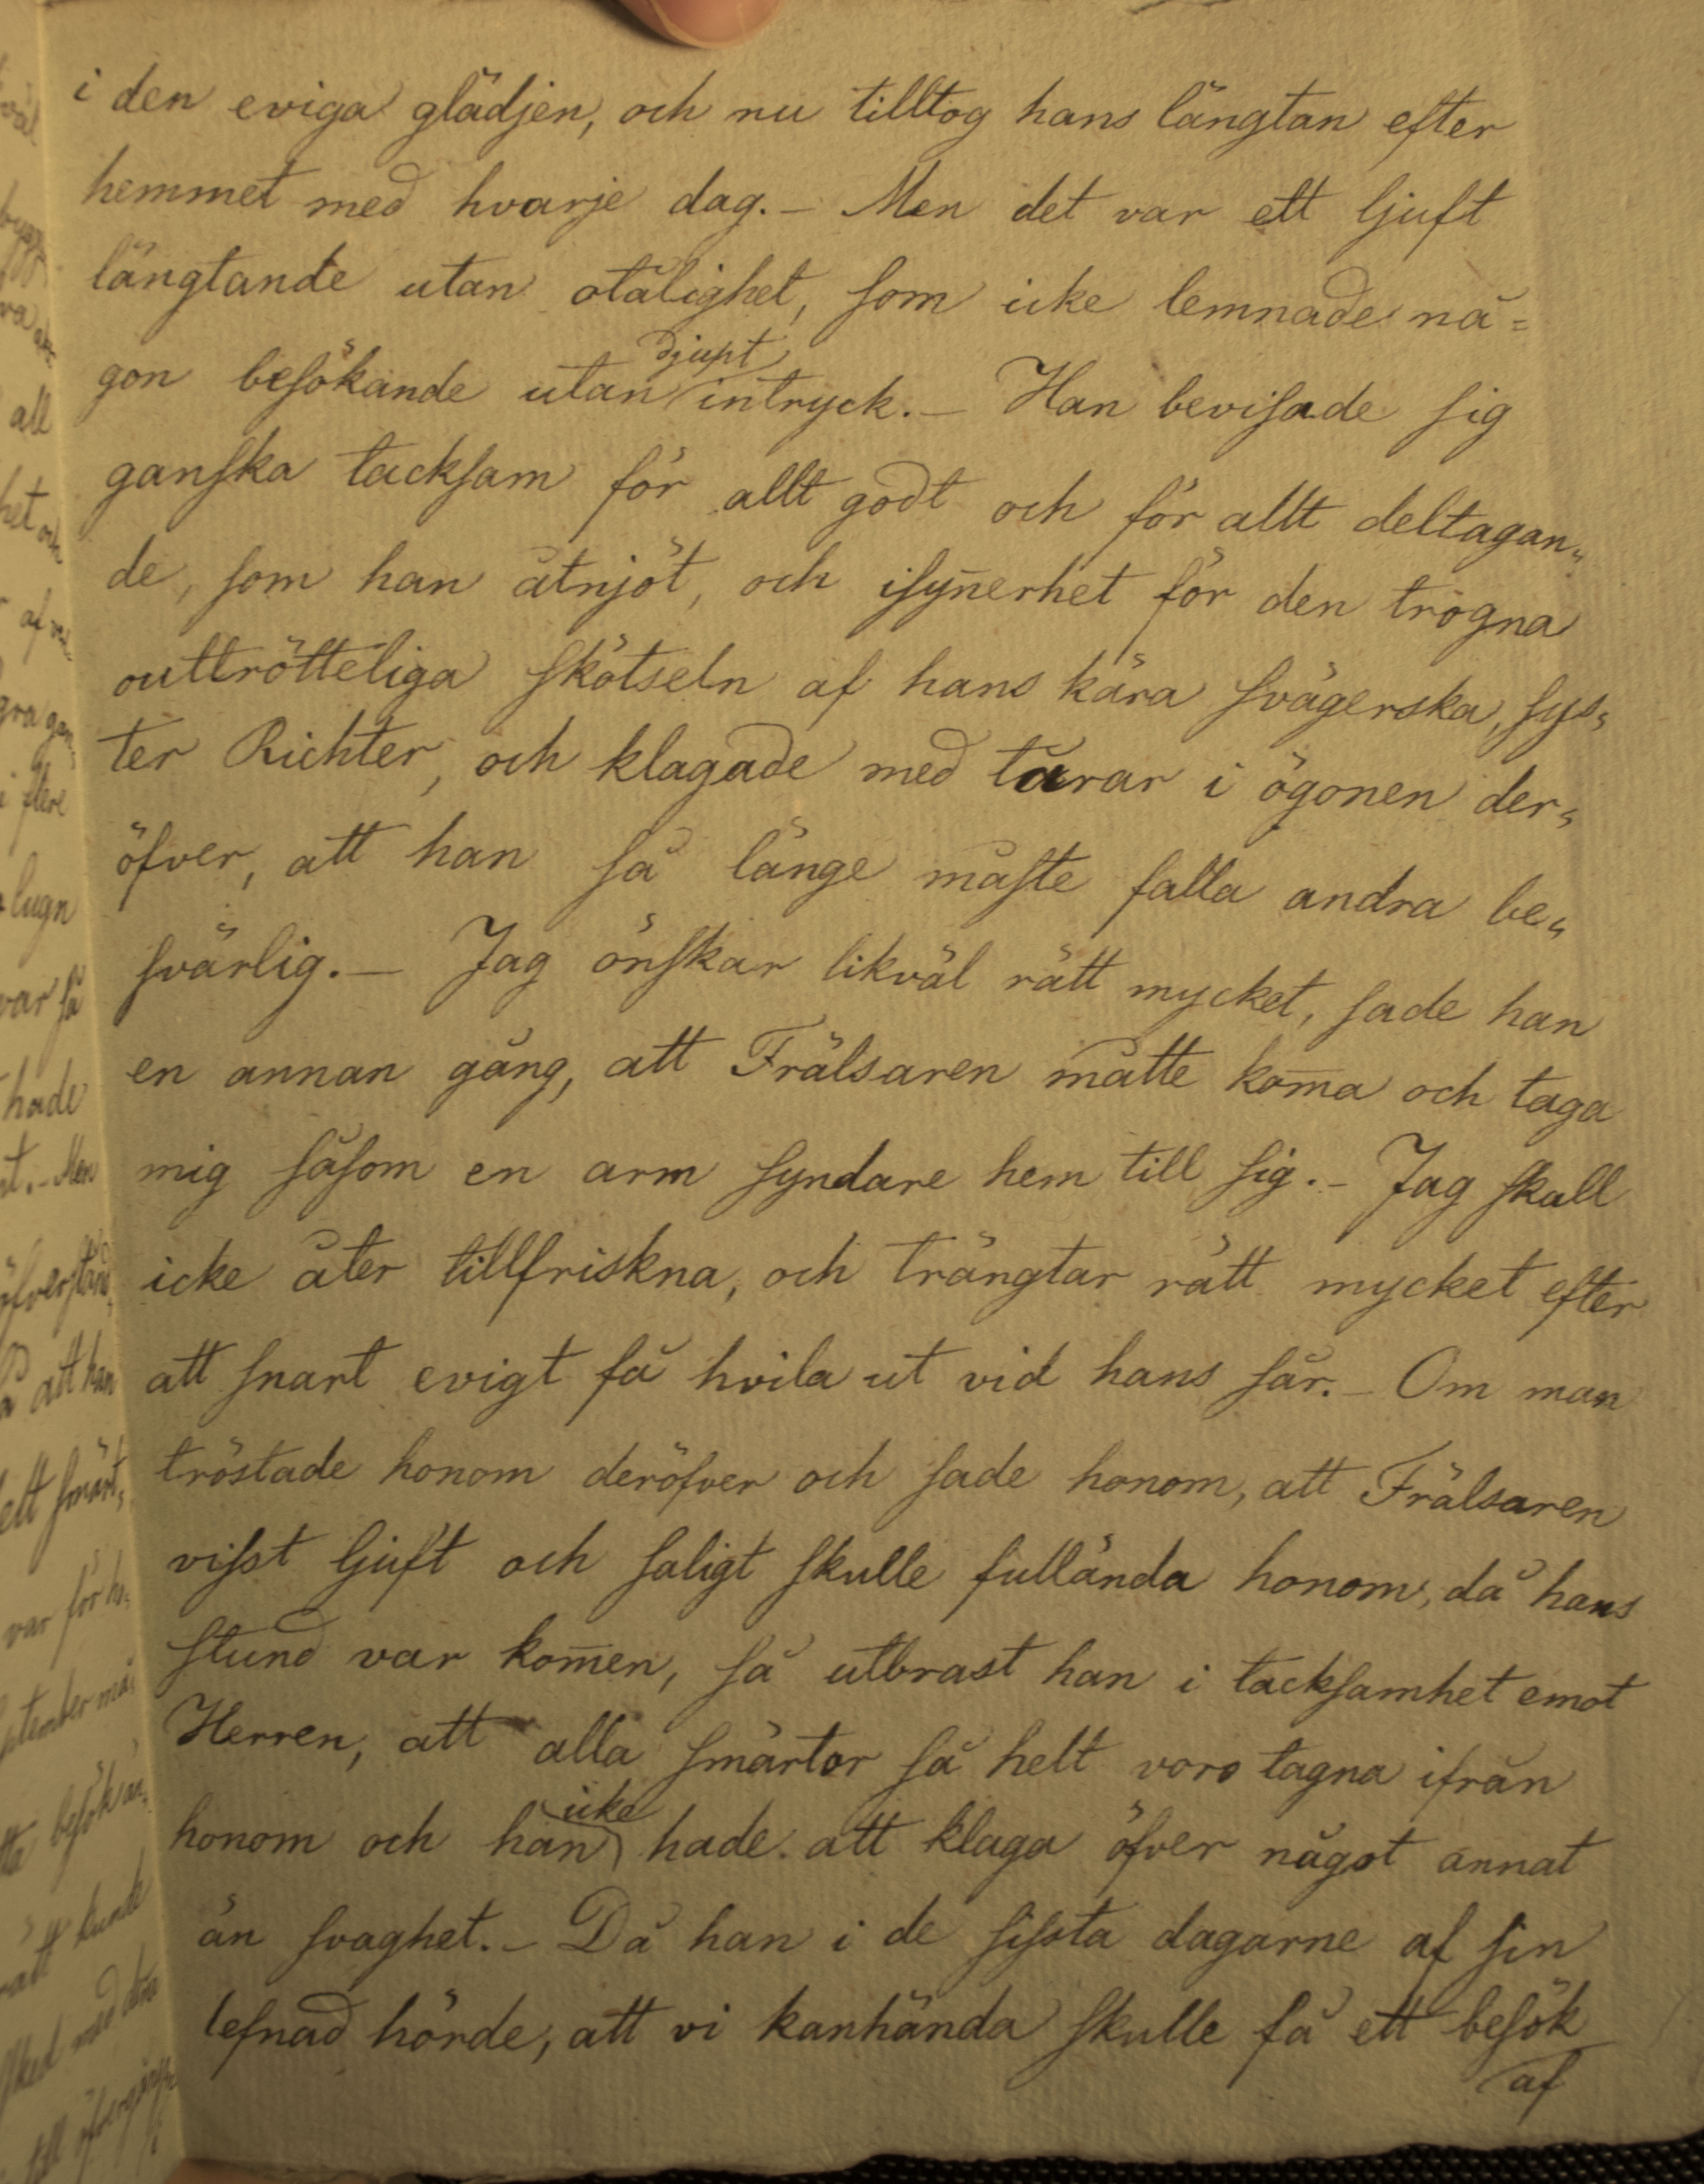 i den eviga glädjen, och nu tilltog hans längtan efter
hemmet med hvarje dag. – Men det var ett ljuft
längtande utan otålighet, som icke lemnade nå=
gon besökande utan djupt intryck. – Han bevisade sig
ganska tacksam för allt godt och för allt deltagan„
de, som han åtnjöt, och isyn̄erhet för den trogna
outtrötteliga skötseln af hans kära svägerska, sys„
ter Richter, och klagade med tårar i ögonen der„
öfver, att han så länge måste falla andra be„
svärlig. – Jag önskar likväl rätt mycket, sade han
en annan gång, att Frälsaren måtte kom̄a och taga
mig såsom en arm syndare hem till sig. – Jag skall
icke åter tillfriskna, och trängtar rätt mycket efter
att snart evigt få hvila ut vid hans sår. – Om man
tröstade honom deröfver och sade honom, att Frälsaren
visst ljuft och saligt skulle fullända honom, då hans
stund var kom̄en, så utbrast han i tacksamhet emot
Herren, att alla smärtor så helt voro tagna ifrån
honom och han icke hade att klaga öfver något annat
än svaghet. – Då han i de sista dagarne af sin
lefnad hörde, att vi kanhända skulle få ett besök
af